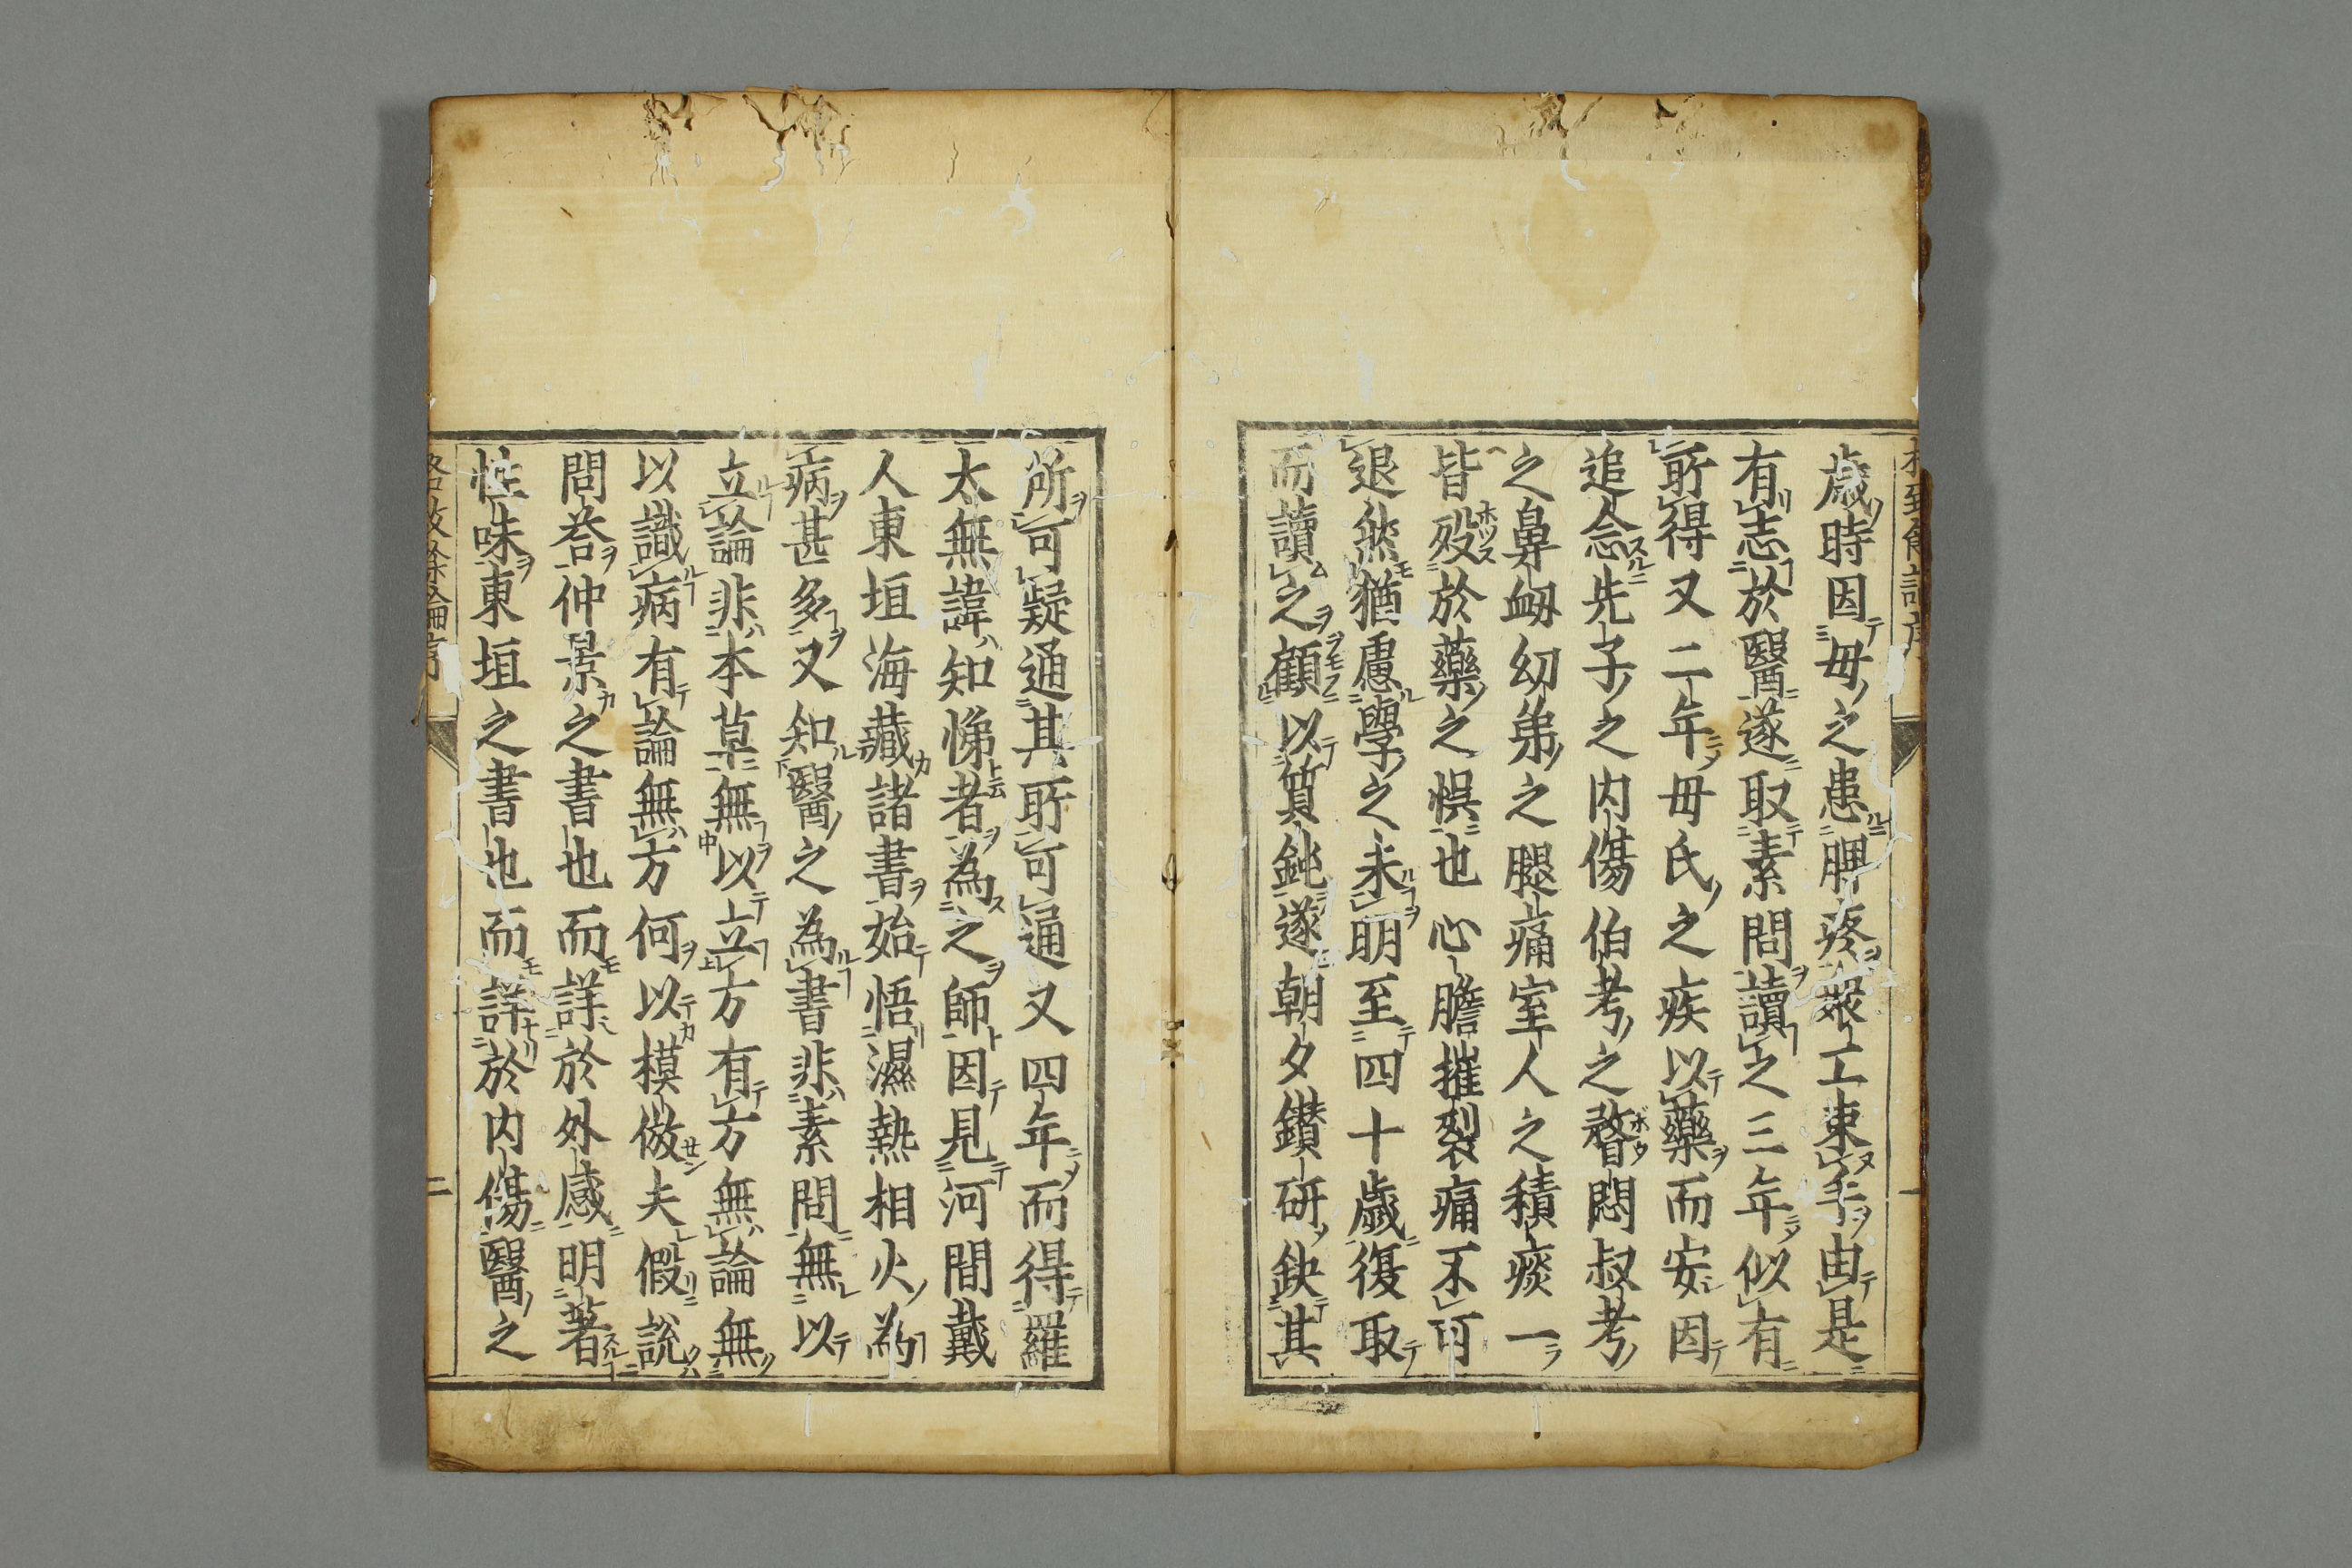 歲時因母之患脾疼衆工束手由是
有志於醫遂取素問讀之三年似有
所得又二年母氏之疾以藥而安因
追念先子之内傷伯考之瞀悶叔考
之鼻衄幼弟之腿痛室人之積痰一
皆殁於藥之悞也心膽摧裂痛不可
退然猶慮學之未明至四十歲復取
而讀之顧以質鈍遂朝夕鑽研缺其
所可疑通其所可通又四年而得羅
太無諱知悌者為之師因見河間戴
人東垣海藏諸書始悟濕熱相火為
病甚多又知醫之為書非素問無以
立論非本草無以立方有方無論無
以識病有論無方何以模倣夫假說
問荅仲景之書也而詳於外感明著
性味東垣之書也而詳於内傷醫之
格致餘論序
二